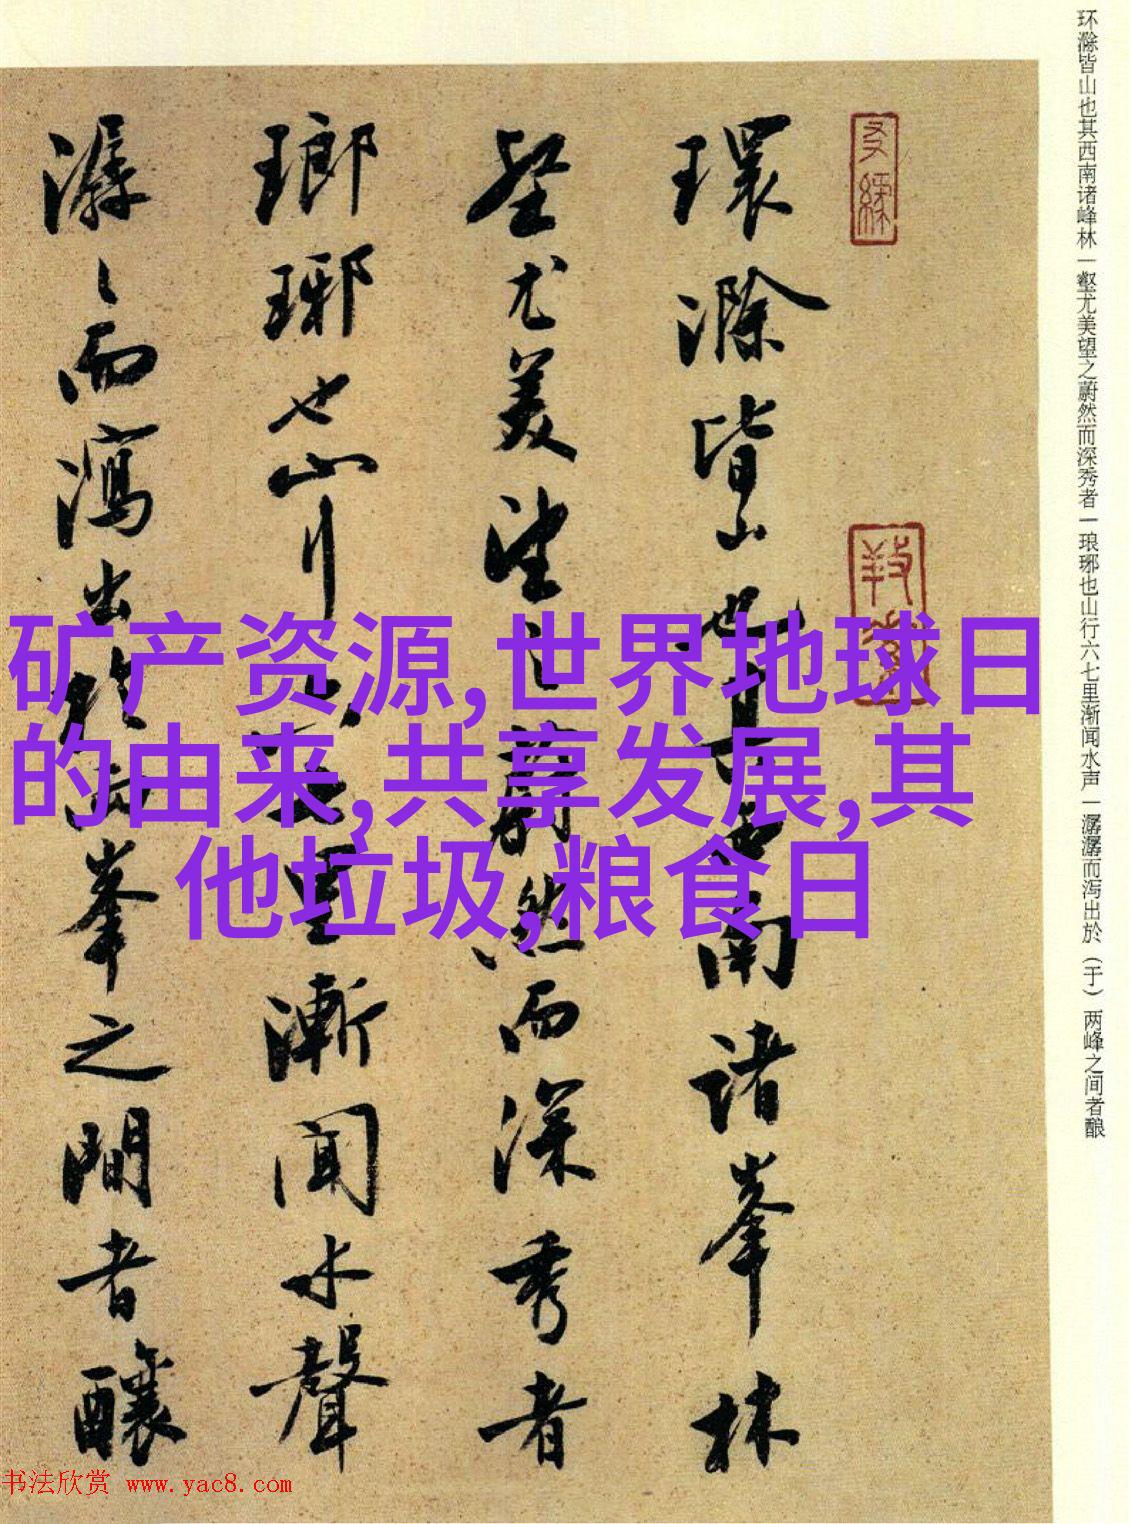 环滁皆山也其西南诸峰林一壑尤美望之蔚然而深秀者一琅琊也山行六七里渐闻水声一潺潺而泻出於（于）两峰之间者酿
環滁皆山也其西南諸峯林
壑尤美望之蔚然而深秀者
瑯琊也山行六七里漸聞水聲
潺〻而瀉出於兩峯之間者釀
矿产资源,世界地球日
的由来,共享发展,其
他垃圾,粮食日
书法欣赏 www.yac8.com